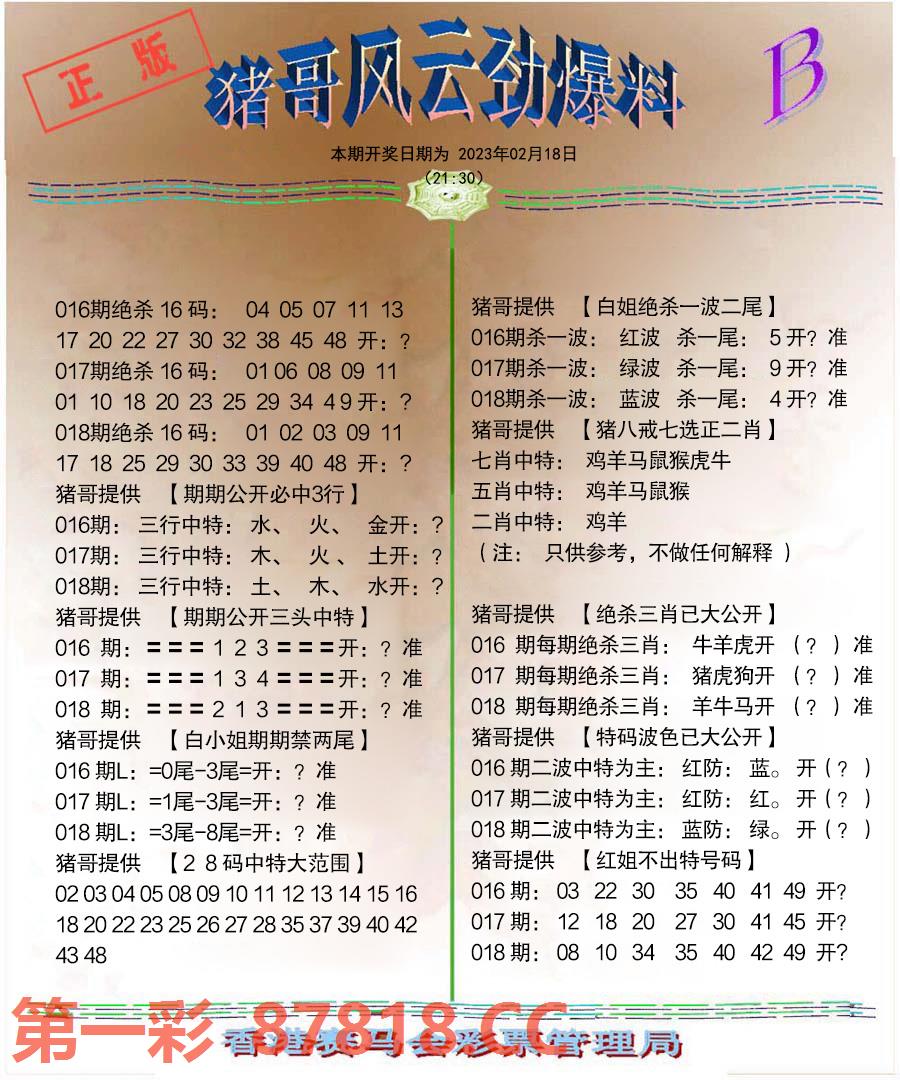 正版
猪哥风云劲爆料
B
本期开奖日期为 2023年02月18日
（21:30）
016期绝杀 16 码： 04 05 07 11 13
17 20 22 27 30 32 38 45 48 开：?
017期绝杀 16 码： 01 06 08 09 11
01 10 18 20 23 25 29 34 4 9 开：?
018期绝杀 16 码： 01 02 03 09 11
17 18 25 29 30 33 39 40 48 开：?
猪哥提供 【期期公开必中3行】
016期： 三行中特：水、 火、 金开：?
017期： 三行中特：木、 火、 土开：?
018期： 三行中特：土、 木、 水开：?
猪哥提供 【期期公开三头中特】
016 期：===1 2 3===开：? 准
017 期：===1 3 4===开：? 准
018 期：===2 1 3===开：? 准
猪哥提供 【白小姐期期禁两尾】
016 期L：=0尾-3尾=开：? 准
017 期L：=1尾-3尾=开：? 准
018 期L：=3尾-8尾=开：? 准
猪哥提供 【２８码中特大范围】
02 03 04 05 08 09 10 11 12 13 14 15 16
18 20 22 23 25 26 27 28 35 37 39 40 42
43 48
猪哥提供 【白姐绝杀一波二尾】
016期杀一波： 红波 杀一尾： 5 开? 准
017期杀一波： 绿波 杀一尾： 9 开? 准
018期杀一波： 蓝波 杀一尾： 4 开? 准
猪哥提供 【猪八戒七选正二肖】
七肖中特： 鸡羊马鼠猴虎牛
五肖中特： 鸡羊马鼠猴
二肖中特： 鸡羊
（注： 只供参考，不做任何解释 ）
猪哥提供 【绝杀三肖已大公开】
016 期每期绝杀三肖： 牛羊虎开 （? ）准
017 期每期绝杀三肖： 猪虎狗开 （? ）准
018 期每期绝杀三肖： 羊牛马开 （? ）准
猪哥提供 【特码波色已大公开】
016 期二波中特为主： 红防： 蓝。 开（? ）
017 期二波中特为主： 红防： 红。 开（? ）
018 期二波中特为主： 蓝防： 绿。 开（? ）
猪哥提供 【红姐不出特号码】
016 期： 03 22 30 35 40 41 49 开?
017 期： 12 18 20 27 30 41 45 开?
018 期： 08 10 34 35 40 42 49 开?
第一彩 87818.CC
香港赛马会彩票管理局